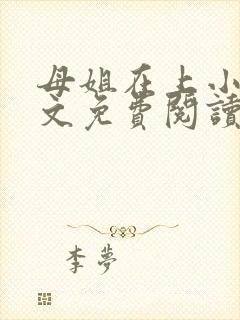 母姐在上小
文免費閱讀
李夢